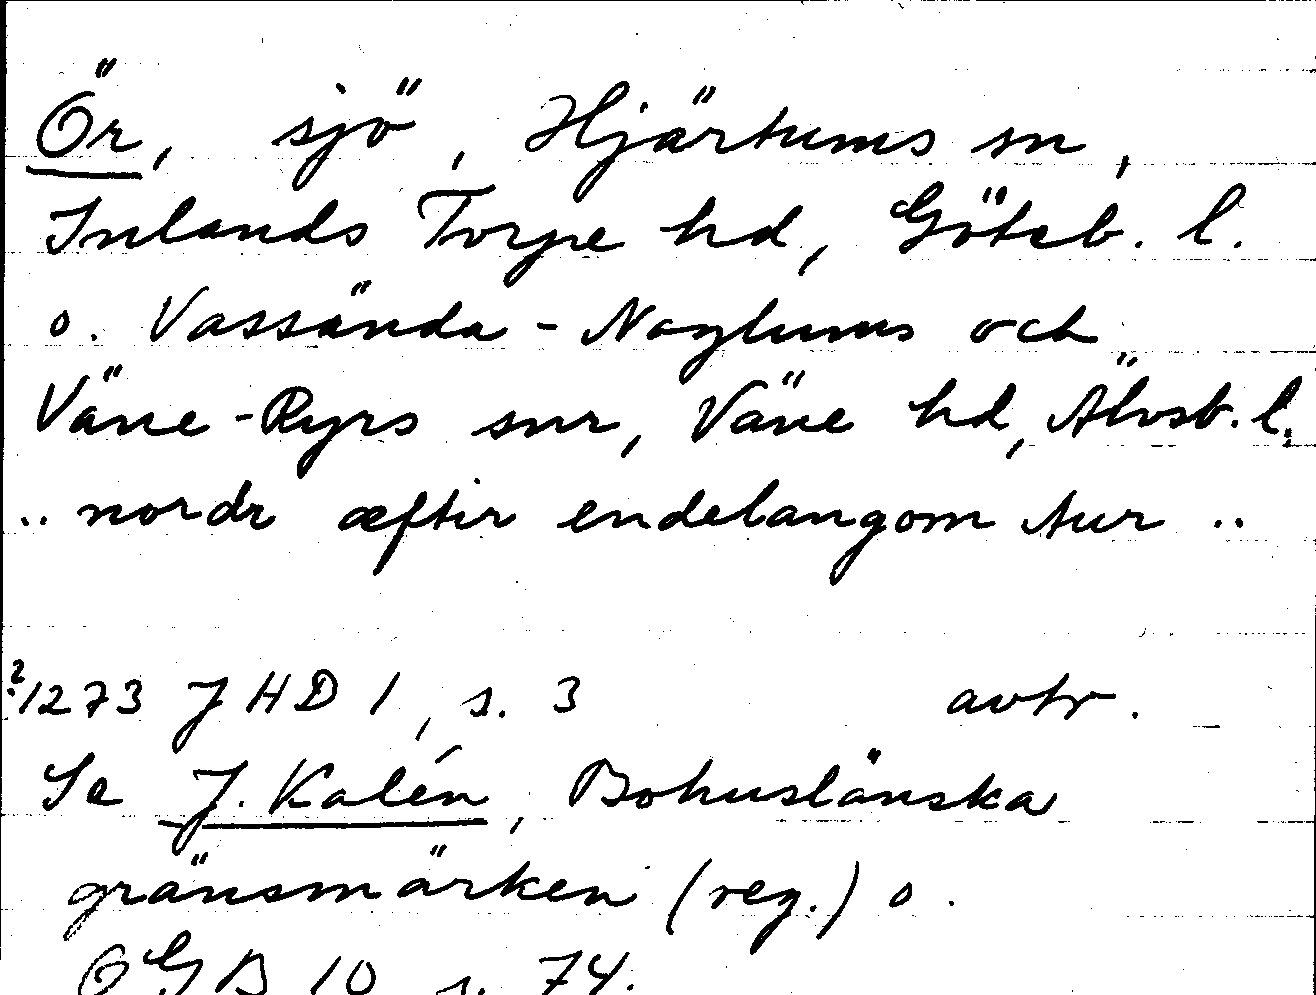 Ör, sjö, Hjärtums sn,
Inlands Torpe hd, Göteb. l.
o. Vassända-Naglums och
Väne-Ryrs snr, Väne hd, Älvsb. l.
.. nordr æftir endelangom Aur ..
?1273 JHD 1, s. 3 avtr.
Se J. Kalén, Bohuslänska
gränsmärken (reg.) o.
OGB 10 s. 74.